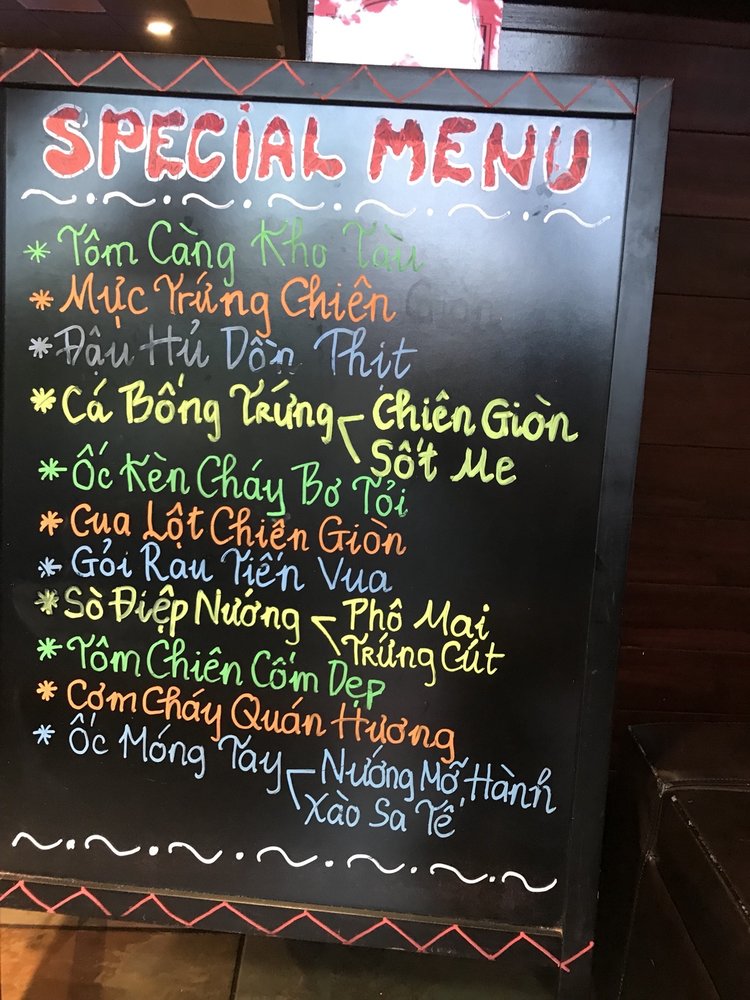 SPECIAL MENU
* Tôm Càng Kho Tàu
* Mực Trứng Chiên Giòn
* Đậu Hủ Dồn Thịt
* Cá Bống Trứng Chiên Giòn
Sốt Me
* Ốc Kèn Cháy Bơ Tỏi
* Cua Lột Chiên Giòn
* Gỏi Rau Tiến Vua
* Sò Điệp Nướng Phô Mai
Trứng Cút
* Tôm Chiên Cốm Dẹp
* Cơm Cháy Quán Hương
* Ốc Móng Tay Nướng Mỡ Hành
Xào Sa Tế